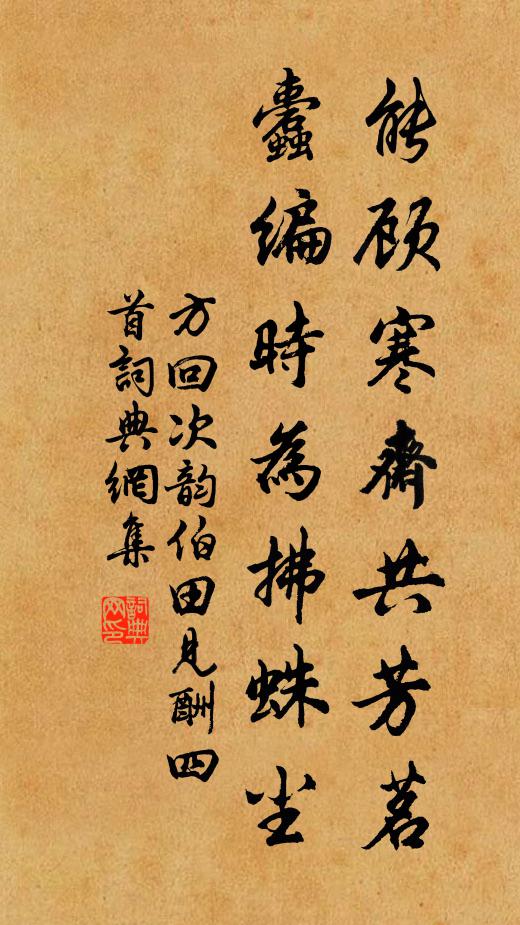 能顾寒齋共芳茗
蠹编時為拂蛛尘
方回次韵伯田见酬四
首詞典網集
詞典
网印